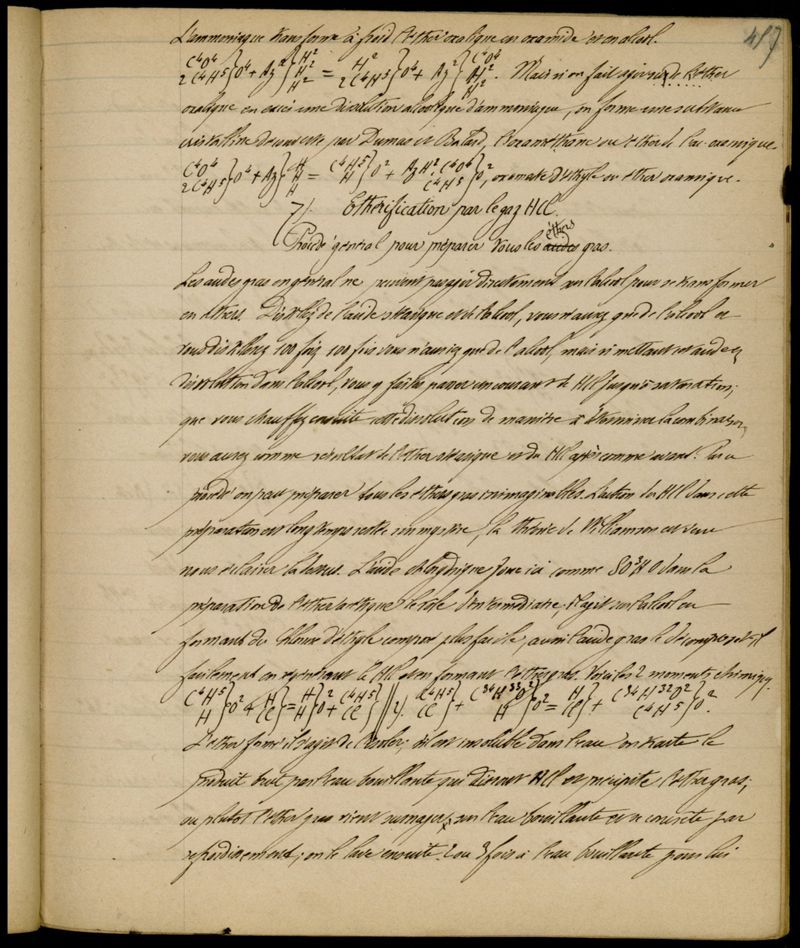 417
L'ammoniaque transforme à froid l'éther oxalique en oxamide et en alcool.
C⁴O⁴ 2C⁴H⁵}O⁴ + Az²{H² H² H² = H² 2C⁴H⁵}O⁴ + Az²{C⁴O⁴ H² H². Mais si on fait agir sur de l'éther
oxalique en excès une dissolution alcoolique d'ammoniaque, on forme une substance
cristalline découverte par Dumas et Balard, l'oxaméthane ou éther de l'ac. oxamique.
C⁴O⁴ 2C⁴H⁵}O⁴ + Az{H H H = C⁴H⁵ H}O² + AzH². C⁴O⁴ C⁴H⁵}O², oxamate d'éthyle ou éther oxamique.
7/. Ethérification par le gaz HCl.
Procédé général pour préparer tous les acides éthers gras.
Les acides gras en général ne peuvent pas agir directement sur l'alcool pour se transformer
en éthers. Distillez de l'acide stéarique et de l'alcool, vous n'aurez que de l'alcool et
vous distillerez 100 fois, 100 fois vous n'auriez que de l'alcool, mais si mettant cet acide en
dissolution dans l'alcool, vous y faites passer un courant de HCl jusqu'à saturation;
que vous chauffez ensuite cette dissolution de manière à déterminer la combinaison,
vous aurez comme résultat de l'éther stéarique et du HCl après comme avant. Par ce
procédé on peut préparer tous les éthers gras inimaginables. L'action du HCl dans cette
préparation est longtemps restée un mystère, la théorie de Williamson est venue
nous éclairer là dessus. L'acide chlorhydrique joue ici comme SO³HO dans la
préparation de l'éther acétique le rôle d'intermédiaire, il agit sur l'alcool en
formant du chlorure d'éthyle composé plus facile, aussi l'acide gras le décompose-t-il
facilement en régénérant le HCl et en formant l'éther gras. Voici les 2 moments chimiq.
C⁴H⁵ H}O² + H Cl} = H H}²O² + C⁴H⁵ Cl} // 2/. C⁴H⁵ Cl} + C³⁴H³²O² H}O² = H Cl} + C³⁴H³²O² C⁴H⁵}O².
L'éther formé il s'agit de l'isoler; il est insoluble dans l'eau on traite le
produit brut par l'eau bouillante qui dissout HCl et précipite l'éther gras;
ou plutôt l'éther gras vient surnager sur l'eau bouillante et se concrète par
refroidissement; on le lave ensuite 2 ou 3 fois à l'eau bouillante pour lui